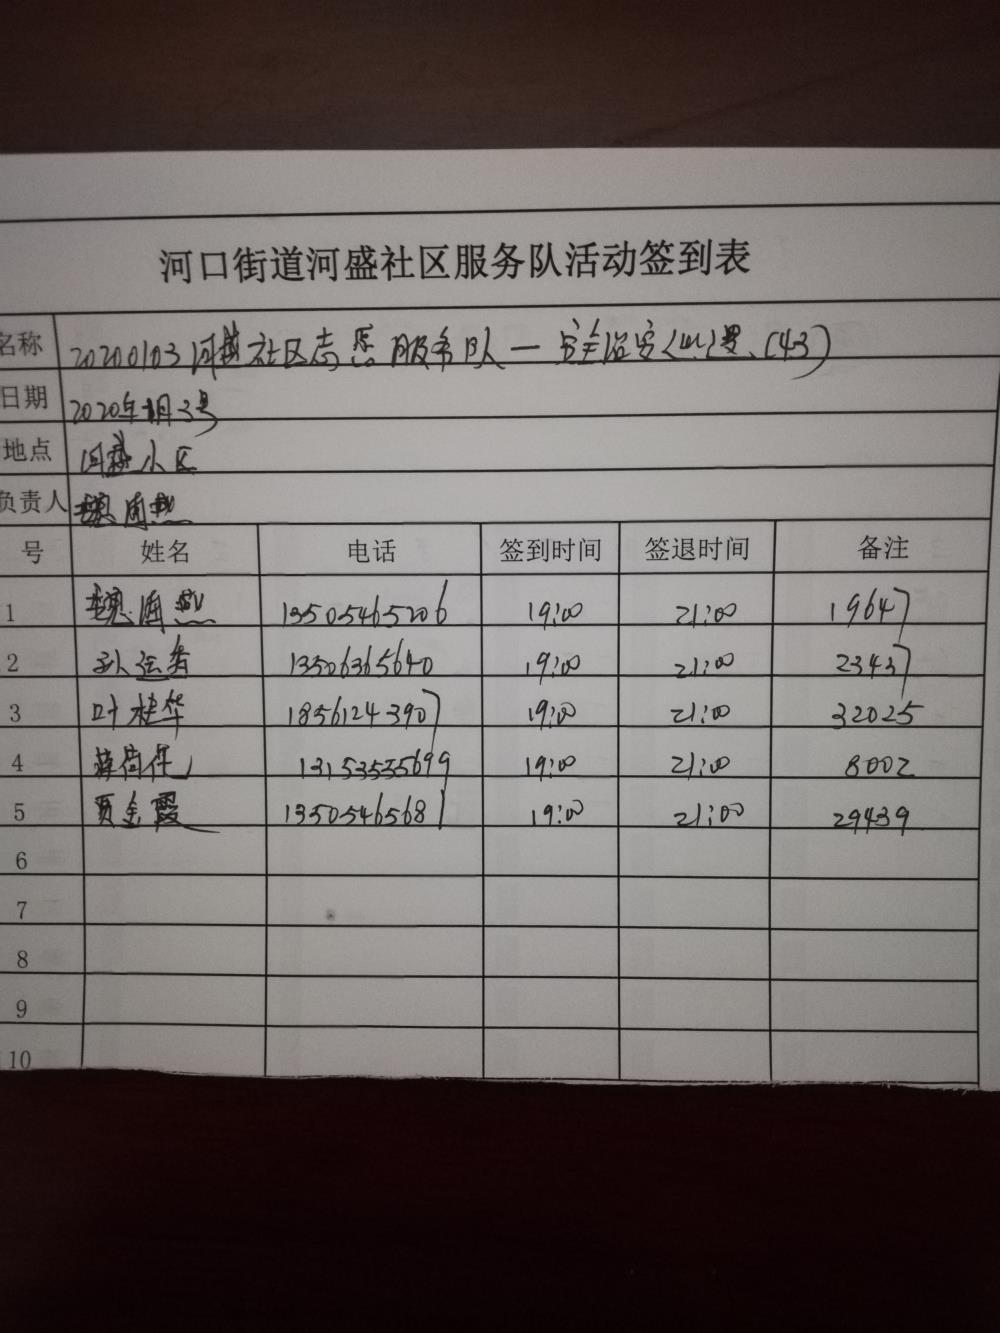 河口街道河盛社区服务队活动签到表
名称 20200103河盛社区志愿服务队一安全治安巡逻(43)
日期 2020年1月3号
地点 河盛小区
负责人
号 姓名 电话 签到时间 签退时间 备注
1 13505465206 19:00 21:00 19647
2 13506365640 19:00 21:00 23437
3 叶桂华 18561243907 19:00 21:00 32025
4 13153535699 19:00 21:00 8002
5 贾金霞 13505465681 19:00 21:00 29439
6
7
8
9
10